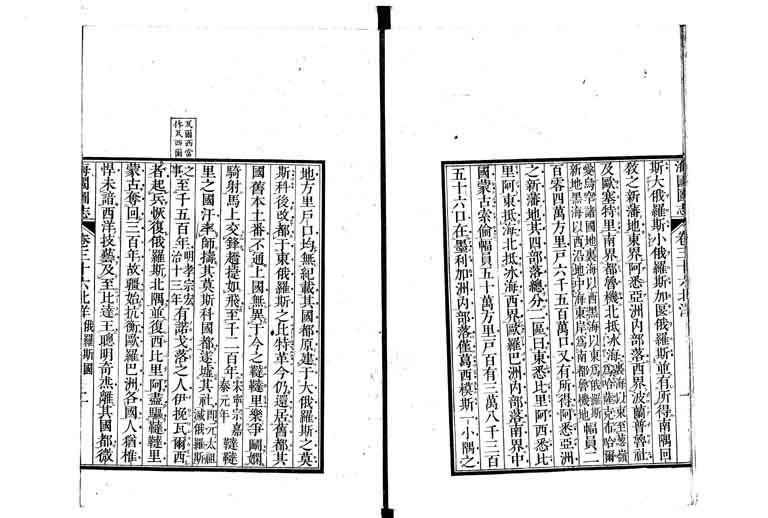 海國圖志 卷三十六 北洋 一
斯大俄羅斯小俄羅斯加匽俄羅斯並有所得南隅回
敎之新藩地東界阿悉亞洲內部落西界波蘭普魯社
及歐塞特里南界都魯機北抵冰海裏海以東至葱嶺爲哈薩克布哈爾
愛烏罕諸國地裏海以西黑海以東爲俄羅斯新地黑海以西沿地中海東岸爲南都魯機地幅員二
百零四萬方里戸六千五百萬口又有所得阿悉亞洲
之新藩地其四部落總分二區曰東悉比里阿西悉比
里阿東抵海北抵冰海西界歐羅巴洲內部落南界中
國蒙古索倫幅員五十萬方里戸百有三萬八千三百
五十六口在墨利加洲內部落僅葛西模斯一小隅之
地方里戸口均無紀載其國都原建于大俄羅斯之莫
斯科後改都于東俄羅斯之比特革今仍還居舊都其
國舊本土番不通上國無異于今之韃韃里樂爭鬭嫻
騎射馬上交鋒趫捷如飛至千二百年宋寧宗嘉泰元年韃韃
里之國汗率師擄其莫斯科國都遂墟其社卽元太祖滅俄羅斯
事之至千五百年明孝宗宏治十三年有諾戈落之人伊挽瓦爾西
者起兵恢復俄羅斯北隅並復西比里阿盡驅韃韃里
蒙古奪回三百年故疆始抗衡歐羅巴洲各國人猶椎
悍未諳西洋技藝及至比達王聰明奇杰離其國都微
海國圖志 卷三十六 北洋 俄羅斯國 二
瓦爾西當
作瓦西爾